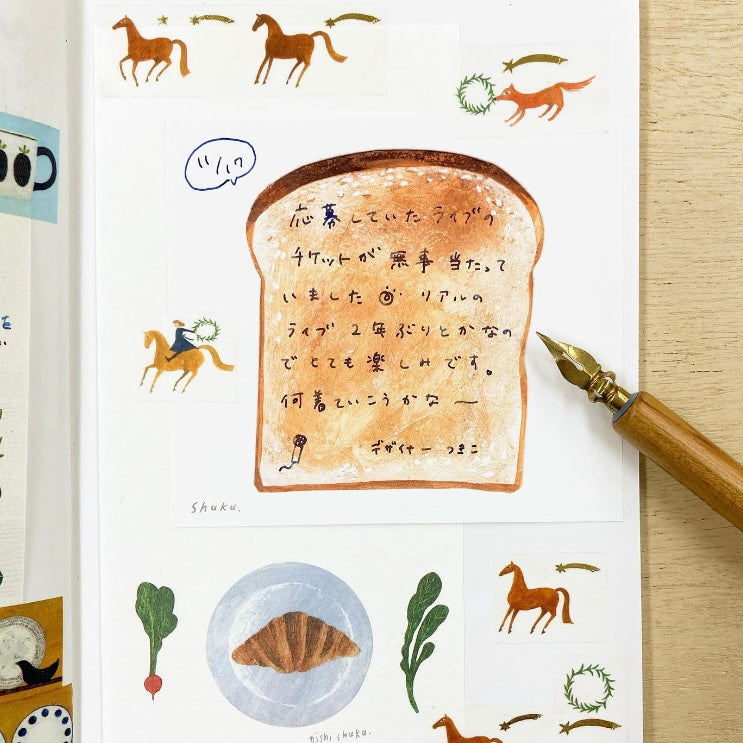 11/17
応募していたライブの
チケットが無事当たって
いました リアルの
ライブ2年ぶりとかなの
でとても楽しみです。
何着ていこうかな〜
デザイナー つきこ
shuku.
nishi shuku.
を